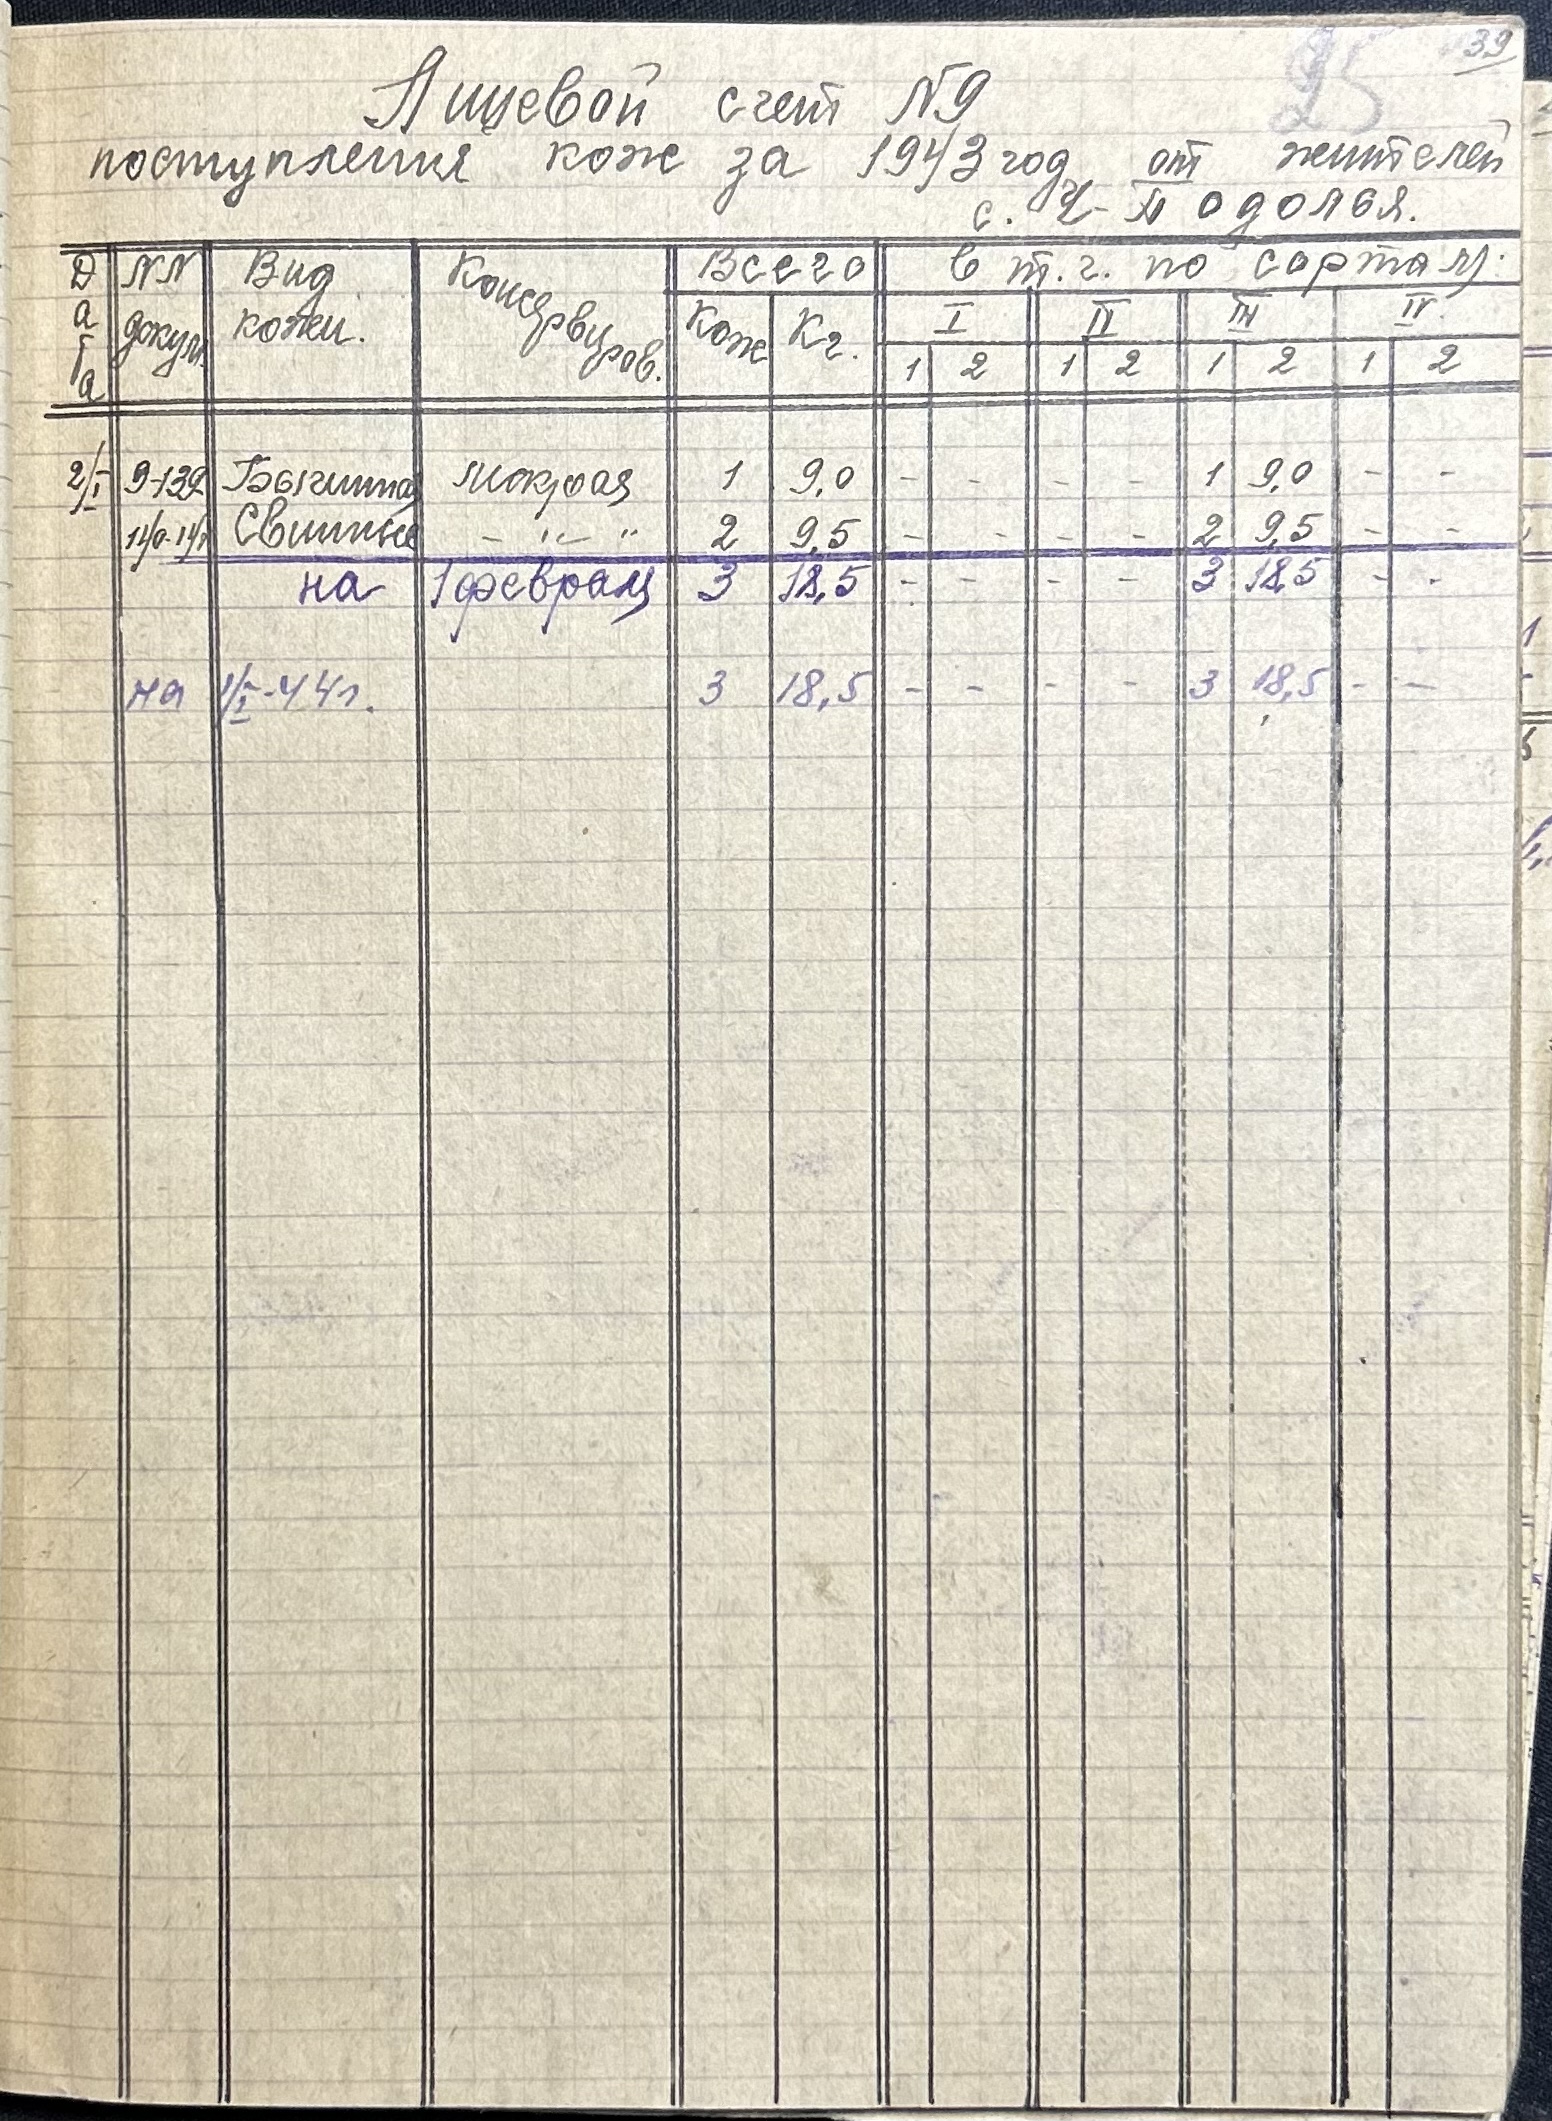 39
95
Лицевой счет N9
поступления кож за 1943 год от жителей
с. Ч-Подолья.
Дата NN докум. Вид кожи. Консервиров. Всего в т.ч. по сортам:
Кож Кг. I II III IV
1 2 1 2 1 2 1 2
2/I 9-139 Бычинная мокрая 1 9,0 - - - - 1 9,0 - -
140-141 Свиные - " - " 2 9,5 - - - - 2 9,5 - -
на 1 февраля 3 18,5 - - - - 3 18,5 - -
на 1/I-44г. 3 18,5 - - - - 3 18,5 - -